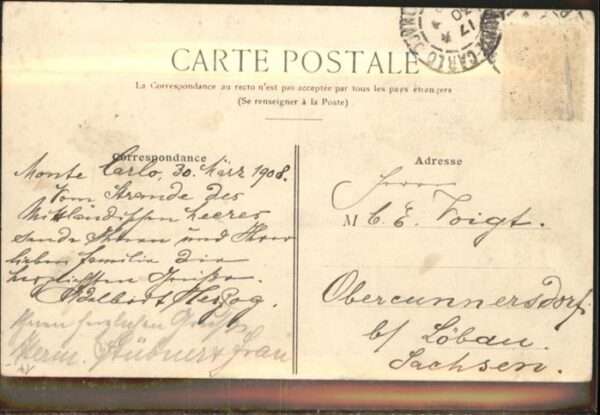 CARTE POSTALE
La Correspondance au recto n'est pas acceptée par tous les pays étrangers
(Se renseigner à la Poste)
Correspondance
Monte Carlo, 30. März 1908.
Vom Strande des
Mittländischen Meeres
sende Ihnen und Ihrer
lieben Familie die
herzlichsten Grüße.
Adelbert Herzog.
Ihnen herzlichen Gruß
Herm. Stübner & Frau
Adresse
Herrn
M C. E. Voigt.
Obercunnersdorf
b/ Löbau.
Sachsen.
MONTE-CARLO
17
30